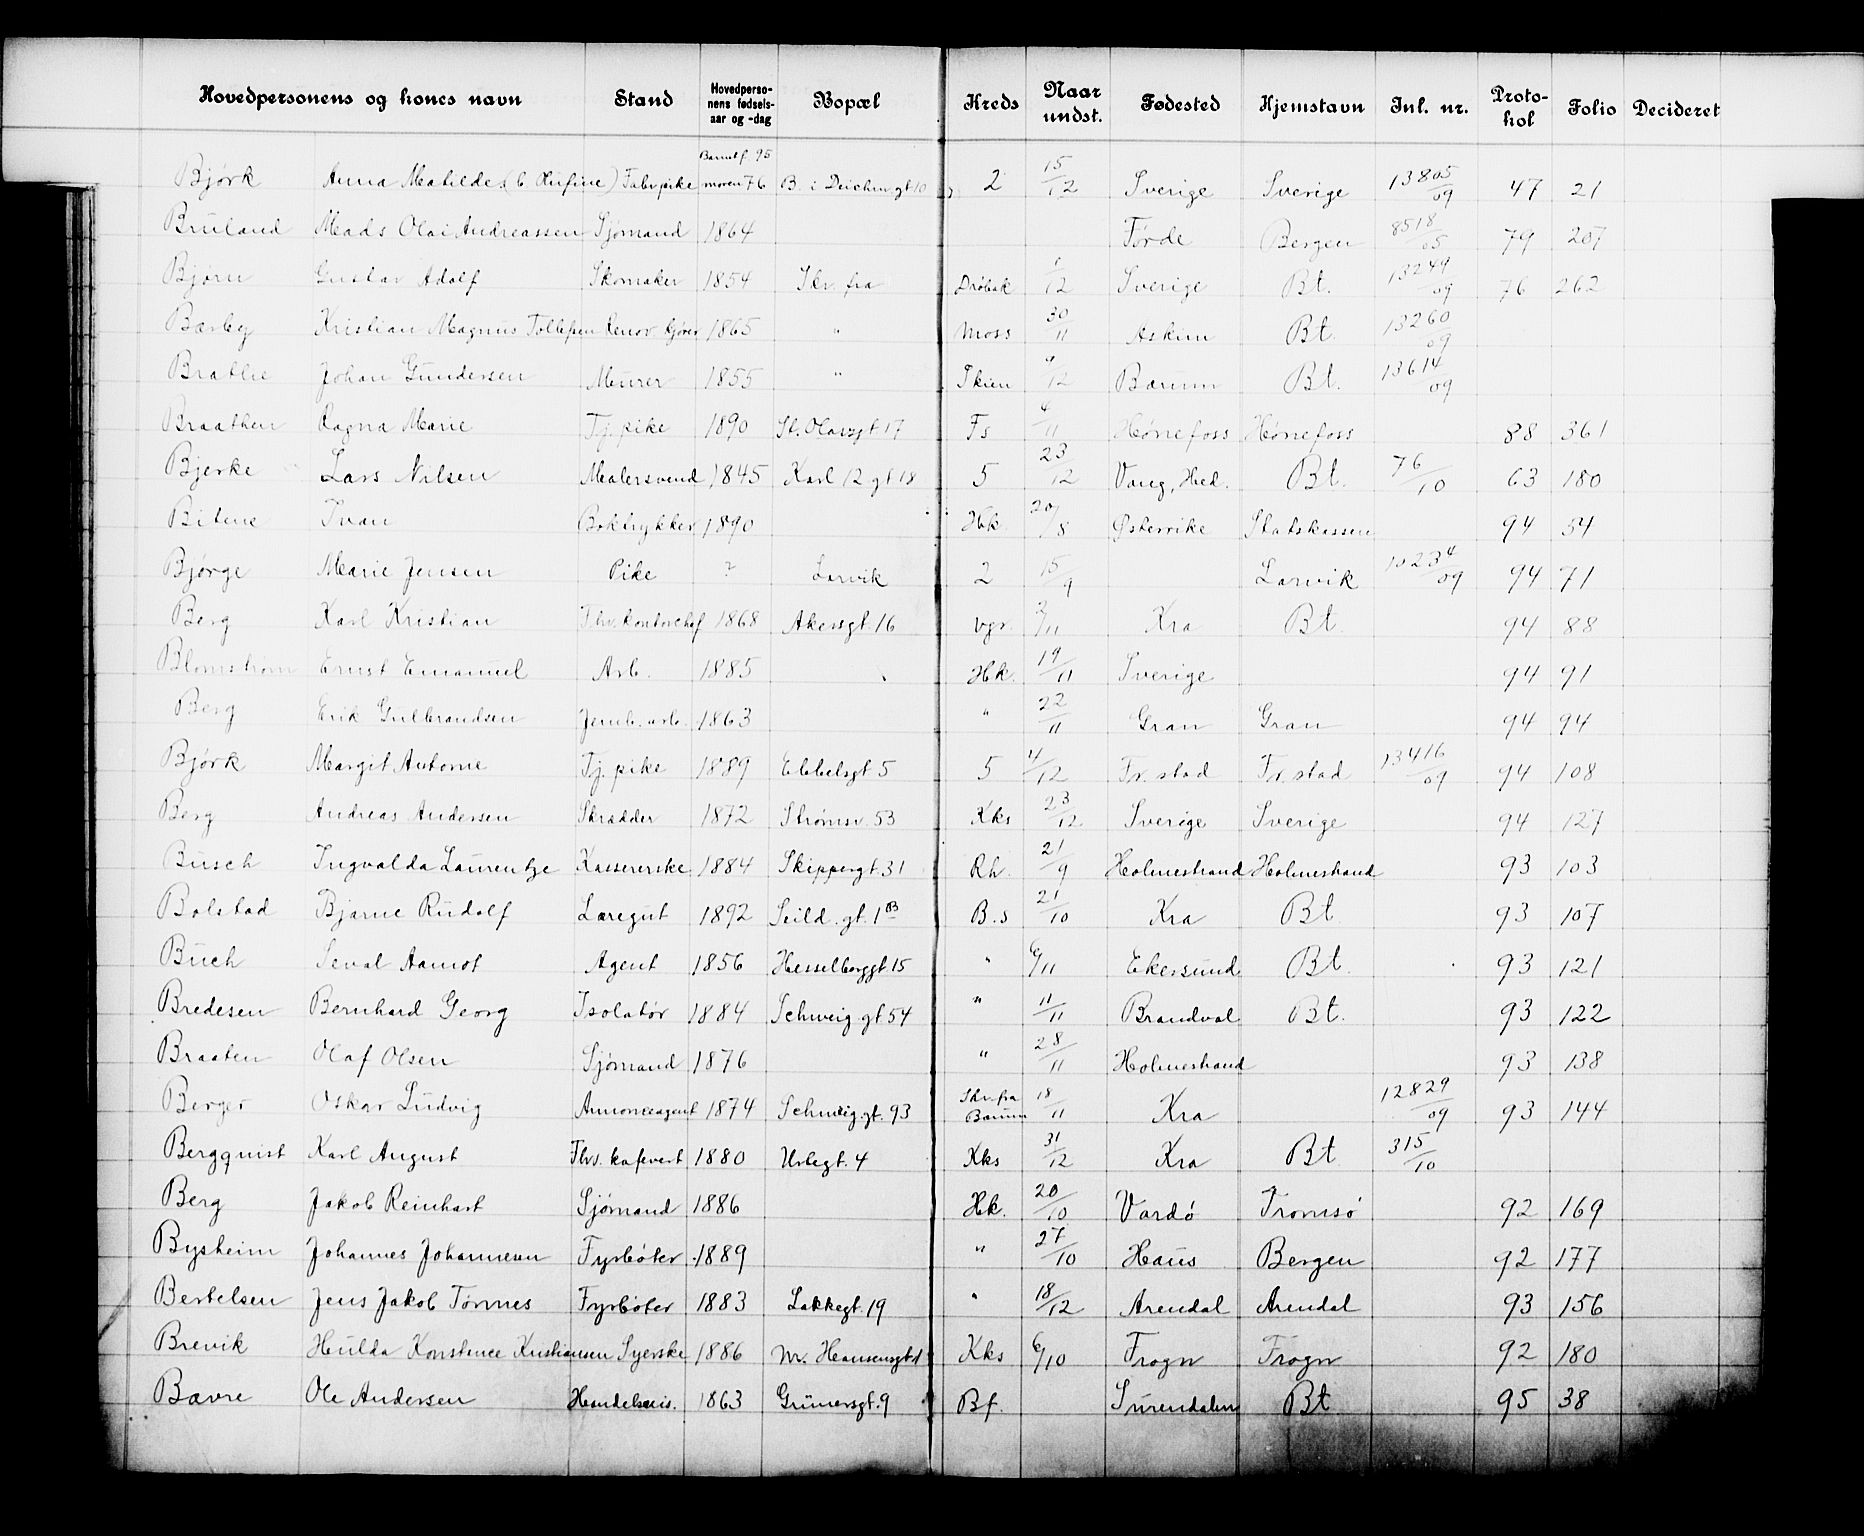 Hovedpersonens og kones navn Stand Hovedperso-nens fødsels-aar og -dag Bopæl Kreds Naar undst. Fødested Hjemstavn Inl. nr. Proto-kol Folio Decideret
Bjørk Anna Matilde Fabrpike moren 76 B. i Deichm gt 10 2 15/12 Sverige Sverige 13805/09 47 21
Bruland Mads Olai Andreassen Sjømand 1864 Førde Bergen 8518/05 79 207
Bjørn Gustav Adolf Skomaker 1854 Skr. fra Drøbak /12 Sverige Bt. 13249/09 76 262
Bærby Kristian Magnus Tollefsen Renov. kjører 1865 " Moss 30/11 Askim Bt. 13260/09
Brathe Johan Gundersen Murer 1855 " Skien /12 Bærum Bt. 13614/09
Braathen Ragna Marie Tj. pike 1890 St. Olavsgt 17 Fs 4/11 Hønefoss Hønefoss 88 361
Bjerke Lars Nilsen Malersvend 1845 Karl 12 gt 18 5 23/12 Vang, Hed. Bt. 76/10 63 180
Bitene Ivan Boktrykker 1890 Hk. 20/8 Østerrike Statskassen 94 54
Bjørge Marie Jensen Pike ? Larvik 2 15/9 Larvik 10234/09 94 71
Berg Karl Kristian Fhv. kontorchef 1868 Akersgt. 16 Vgr. 2/11 Kra Bt. 94 88
Blomstrøm Ernst Emanuel Arb. 1885 Hk. 19/11 Sverige 94 91
Berg Erik Gulbrandsen Jernb. arb. 1863 " 22/11 Gran Gran 94 94
Bjørk Margit Antonie Tj. pike 1889 Ebbelsgt 5 5 4/12 Fr. stad Fr. stad 13416/09 94 108
Berg Andreas Andersen Skrædder 1872 Strømsv. 53 Kks 23/12 Sverige Sverige 94 127
Busch Ingvalda Laurentze Kassererske 1884 Skippergt. 31 Rh. 21/9 Holmestrand Holmestrand 93 103
Bolstad Bjarne Rudolf Læregut 1892 Seild. gt. 1 B B.s 21/10 Kra Bt. 93 107
Buch Seval Aamot Agent 1856 Hesselberggt 15 " 6/11 Ekersund Bt. 93 121
Bredesen Bernhard Georg Isolatør 1884 Schweig. gt 54 " 11/11 Brandval Bt. 93 122
Braaten Olaf Olsen Sjømand 1876 " 28/11 Holmestrand 93 138
Berger Oskar Ludvig Annonceagent 1874 Schweig. gt. 93 Skr. fra Bærum 18/11 Kra 12829/09 93 144
Bergquist Karl August Fhv. kafevert 1880 Urtegt. 4 Kks 31/12 Kra Bt. 315/10
Berg Jakob Reinhart Sjømand 1886 Hk. 20/10 Vardø Tromsø 92 169
Bysheim Johannes Johannesen Fyrbøter 1889 " 27/10 Haus Bergen 92 177
Bertelsen Jens Jakob Tønnes Fyrbøter 1883 Lakkegt. 19 " 18/12 Arendal Arendal 93 156
Brevik Hulda Konstence Kristiansen Syerske 1886 Kks 6/10 Frogn Frogn 92 180
Bævre Ole Andersen 1863 Grünersgt. 9 Bf. Surendalen Bt. 95 38